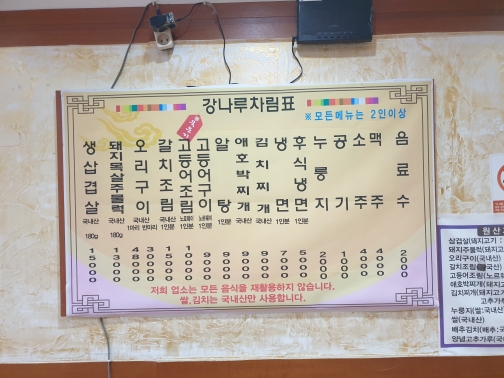 강나루차림표
※모든메뉴는 2인이상
생삼겹살
국내산
180g
15000
돼지목살주물럭
국내산
180g
13000
오리구이
국내산
1마리 반마리
갈치조림
국내산
1인분
고등어조림
노르웨이
1인분
고등어구이
노르웨이
1인분
9000
알탕
1인분
9000
애호박찌개
국내산
9000
김치찌개
국내산
9000
냉면
1인분
7000
후식냉면
1인분
5000
누룽지
2000
공기
1000
소주
4000
맥주
4000
음료수
2000
저희 업소는 모든 음식을 재활용하지 않습니다.
쌀,김치는 국내산만 사용합니다.
원산
삼겹살(돼지고기:
돼지주물럭(돼지고
오리구이(국내산)
갈치조림 국산)
고등어조림(노르
애호박찌개(돼지고
김치찌개(돼지고
고추가루
누룽지(쌀:국내
쌀(국내산)
배추김치(배추:국
양념고추가루(국